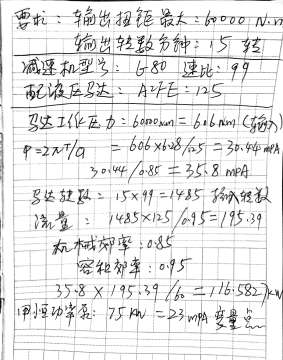 要求: 输出扭距最大: 60000 N.m
输出转数每分钟: 15 转
减速机型号: G80 速比: 99
配液压马达: A2FE: 125
马达工作压力: 60000 = 606 Nm (输入)
P=2πT/q = 606×6.28/125 = 30.44 MPA
30.44/0.85 = 35.8 MPA
马达转数: 15×99=1485 输入转数
流量: 1485×125/0.95=195.39
机械效率: 0.85
容积效率: 0.95
35.8 × 195.39/60 = 116.582 KW
用恒功率泵: 75 KW = 23 MPA 变量点